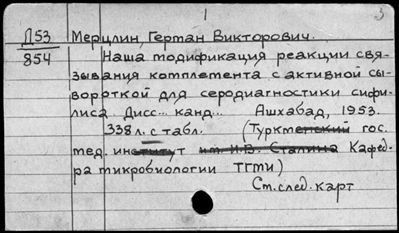 1 3
Д53 Мерцлин, Герман Викторович.
854 Наша модификация реакции свя-
зывания комплемента с активной сы-
вороткой для серодиагностики сифи-
лиса. Дисс... канд... Ашхабад, 1953.
338 л. с табл. (Туркменский гос.
мед. институт им. И.В. Сталина Кафед-
ра микробиологии ТГМИ)
См. след. карт